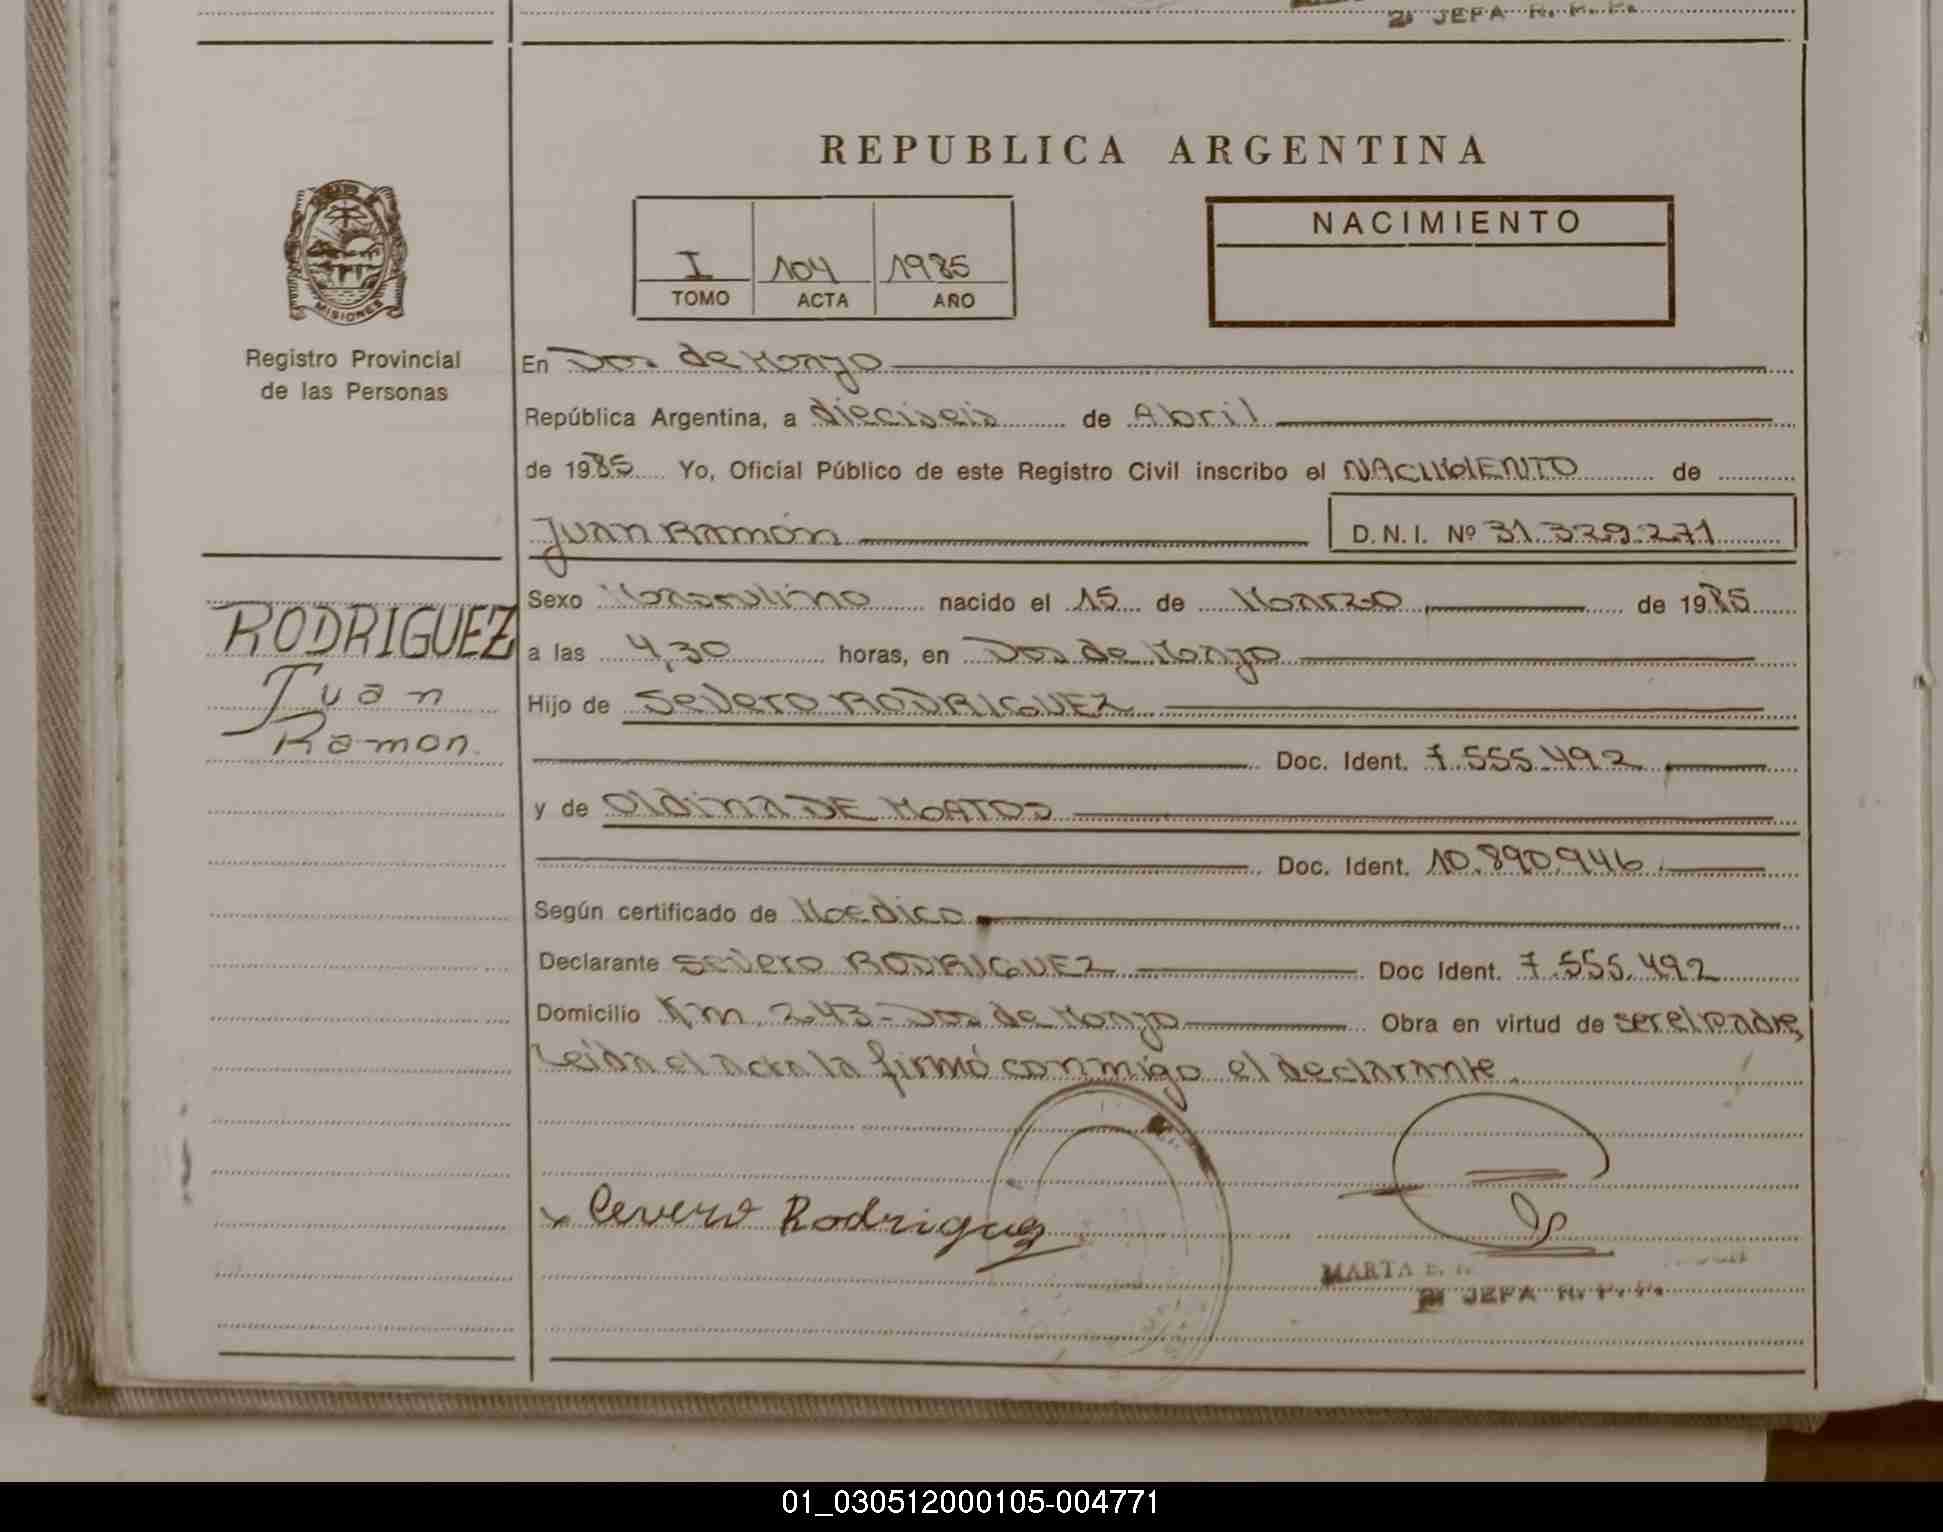 2) JEFA R. P. P.
REPUBLICA ARGENTINA
MISIONES
Registro Provincial
de las Personas
I 104 1985
TOMO ACTA AÑO
NACIMIENTO
En Dos de Mayo
República Argentina, a dieciseis de Abril
de 1985 Yo, Oficial Público de este Registro Civil inscribo el NACIMIENTO de
Juan Ramón D.N.I. Nº 31.329.271
RODRIGUEZ
Juan
Ramon.
Sexo Masculino nacido el 15 de Marzo de 1985
a las 4,30 horas, en Dos de Mayo
Hijo de Severo RODRIGUEZ
Doc. Ident. 7.555.492
y de Oldina DE MATOS
Doc. Ident. 10.890.946
Según certificado de Medico
Declarante Severo RODRIGUEZ Doc Ident. 7.555.492
Domicilio Km. 243 - Dos de Mayo Obra en virtud de ser el padre,
Leida el acta la firmó conmigo el declarante.
x Cevero Rodriguez
MARTA E.
2) JEFA R. P. P.
01_030512000105-004771